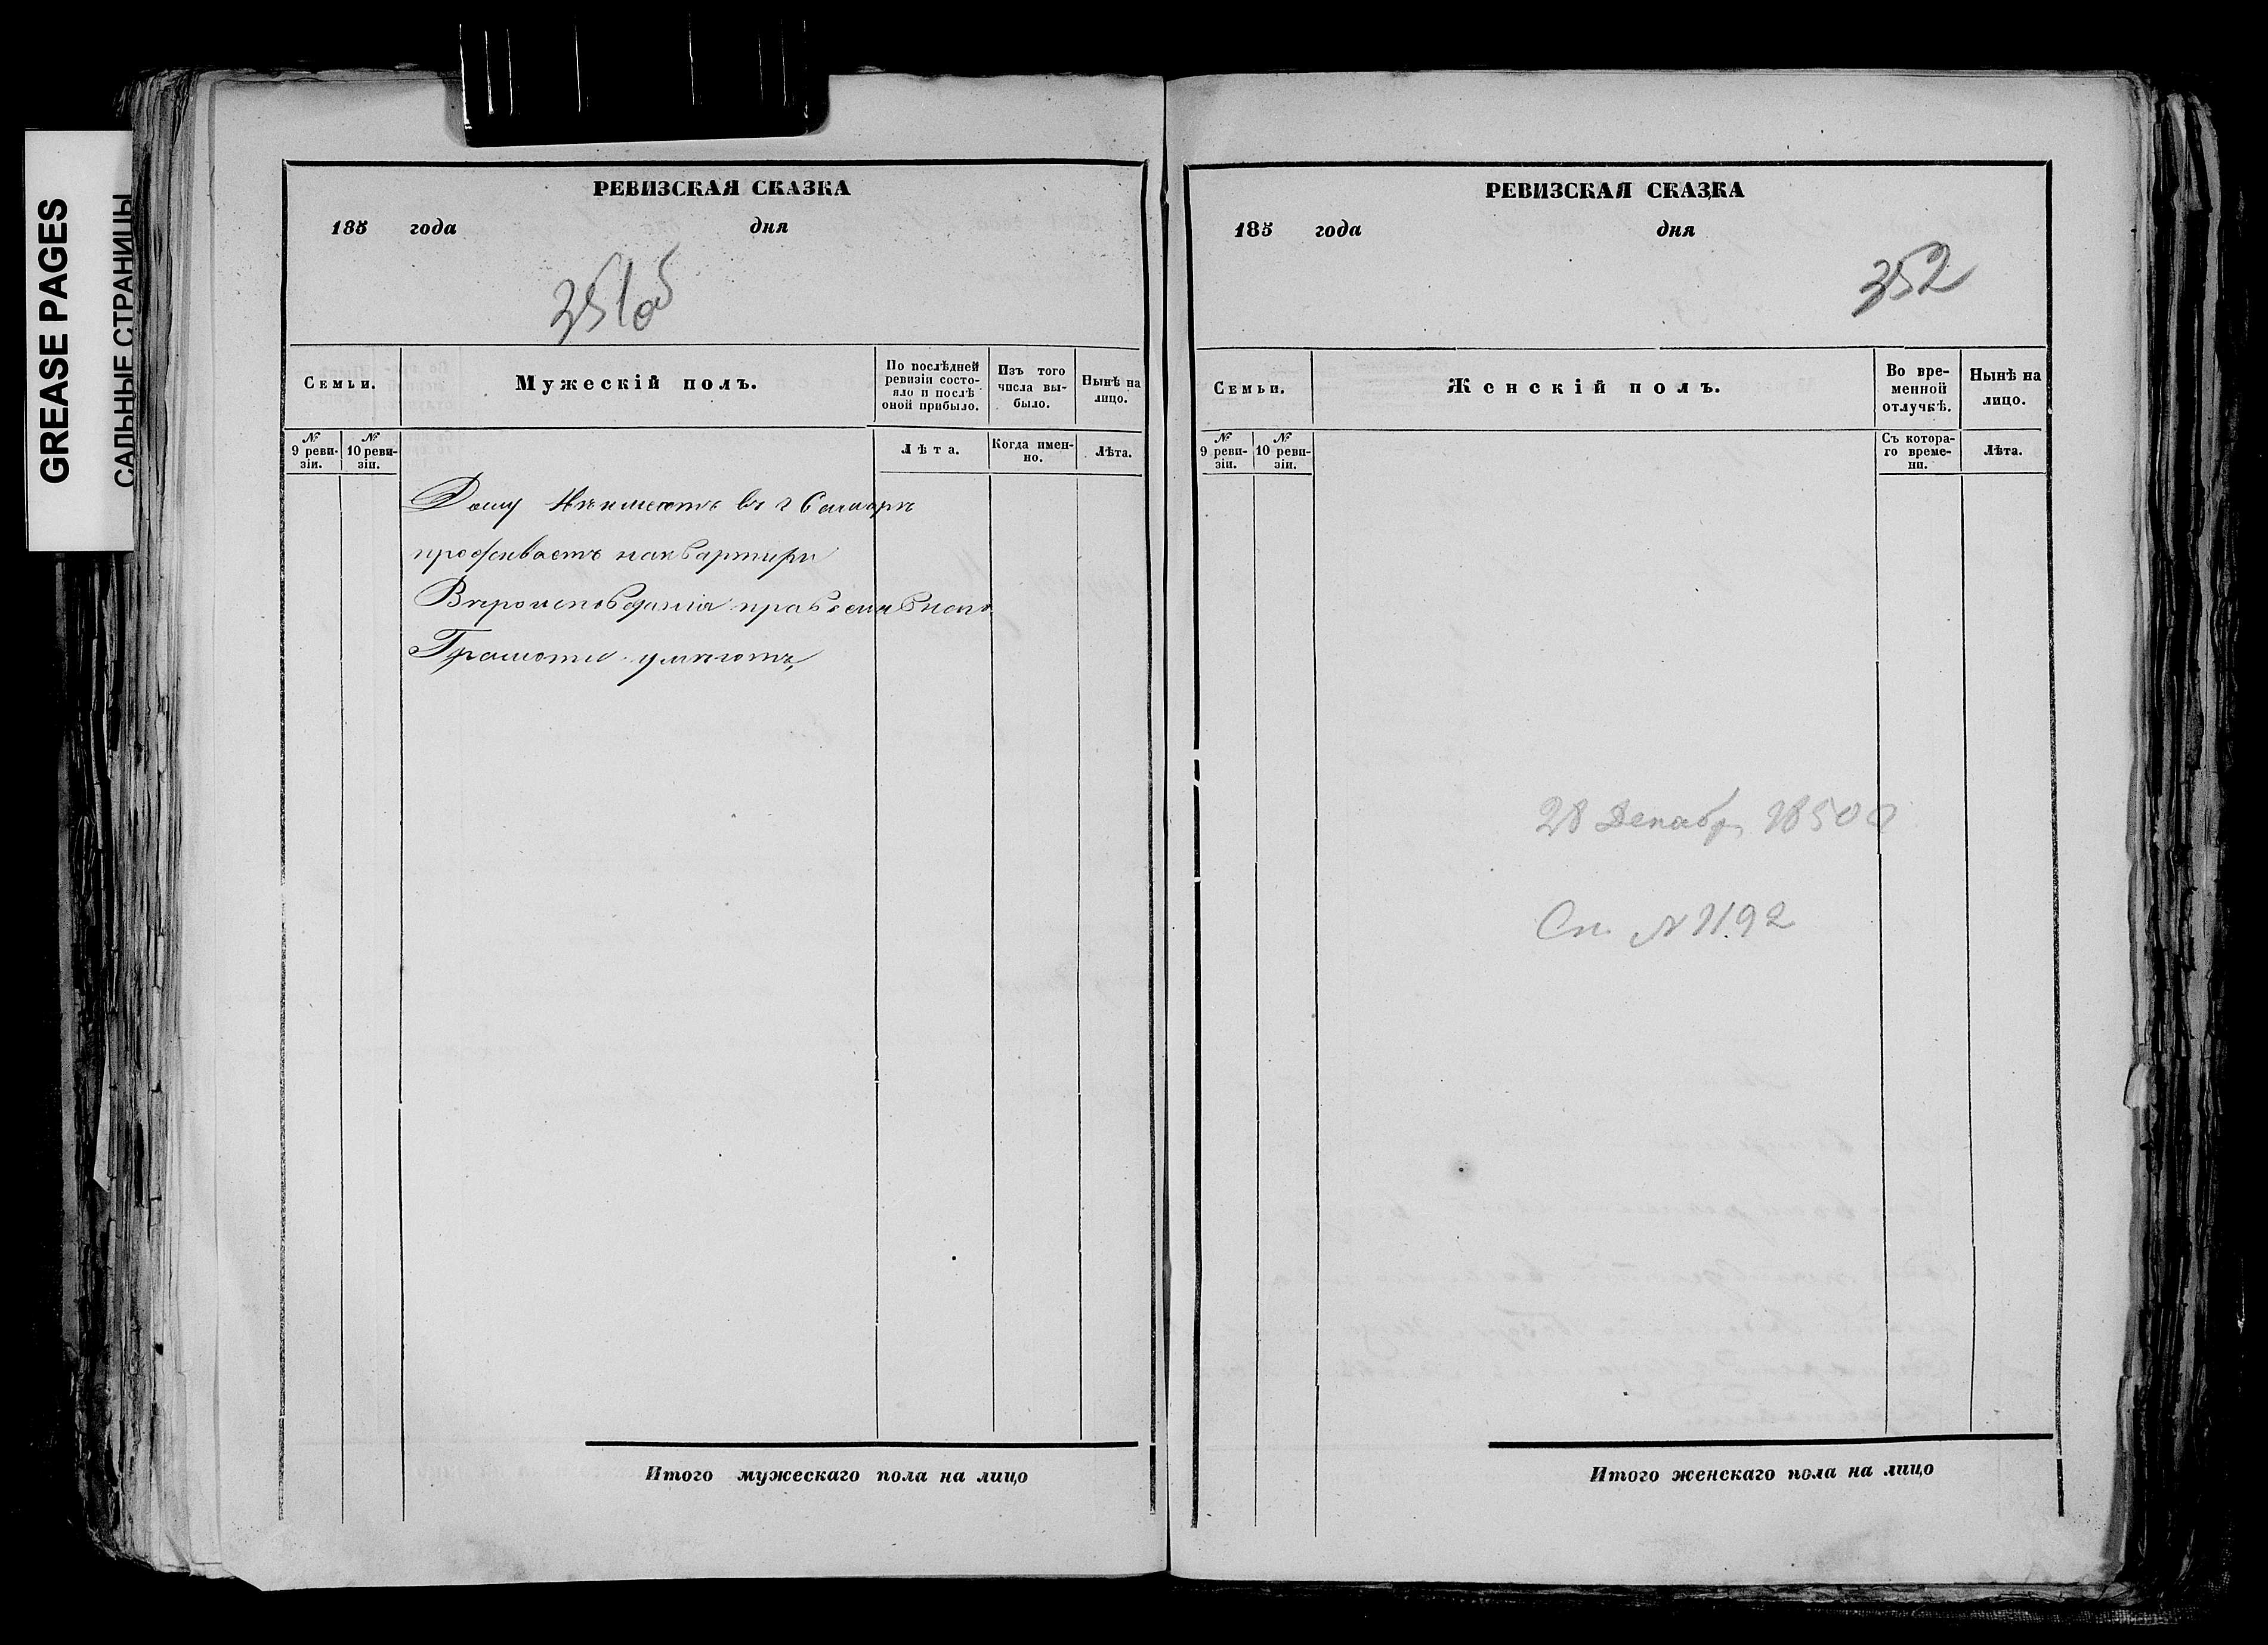 GREASE PAGES
САЛЬНЫЕ СТРАНИЦЫ
РЕВИЗСКАЯ СКАЗКА
185 года дня
351об
Семьи.
Мужескій полъ.
По послѣдней ревизіи состояло и послѣ оной прибыло.
Изъ того числа выбыло.
Нынѣ на лицо.
№ 9 ревизіи.
№ 10 ревизіи.
Лѣта.
Когда именно.
Лѣта.
Дому Неимеетъ въ г Самарѣ
проживаетъ наквартири
Вѣроисповѣданія православнаго
Грамоти умѣютъ,
Итого мужескаго пола на лицо
РЕВИЗСКАЯ СКАЗКА
185 года дня
352
Семьи.
Женскій полъ.
Во временной отлучкѣ.
Нынѣ на лицо.
№ 9 ревизіи.
№ 10 ревизіи.
Съ котораго времени.
Лѣта.
28 Декабр
Сп. № 1192
Итого женскаго пола на лицо